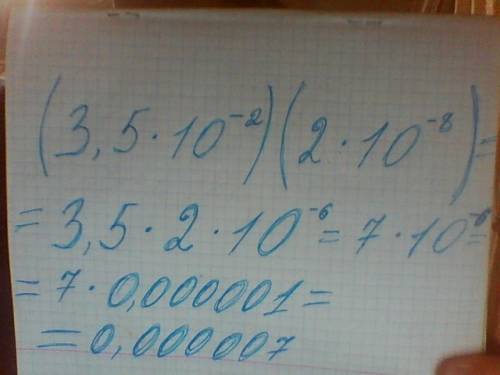 (3,5·10⁻²)(2·10⁻⁸)=
=3,5·2·10⁻⁶=7·10⁻⁶=
=7·0,000001=
=0,000007